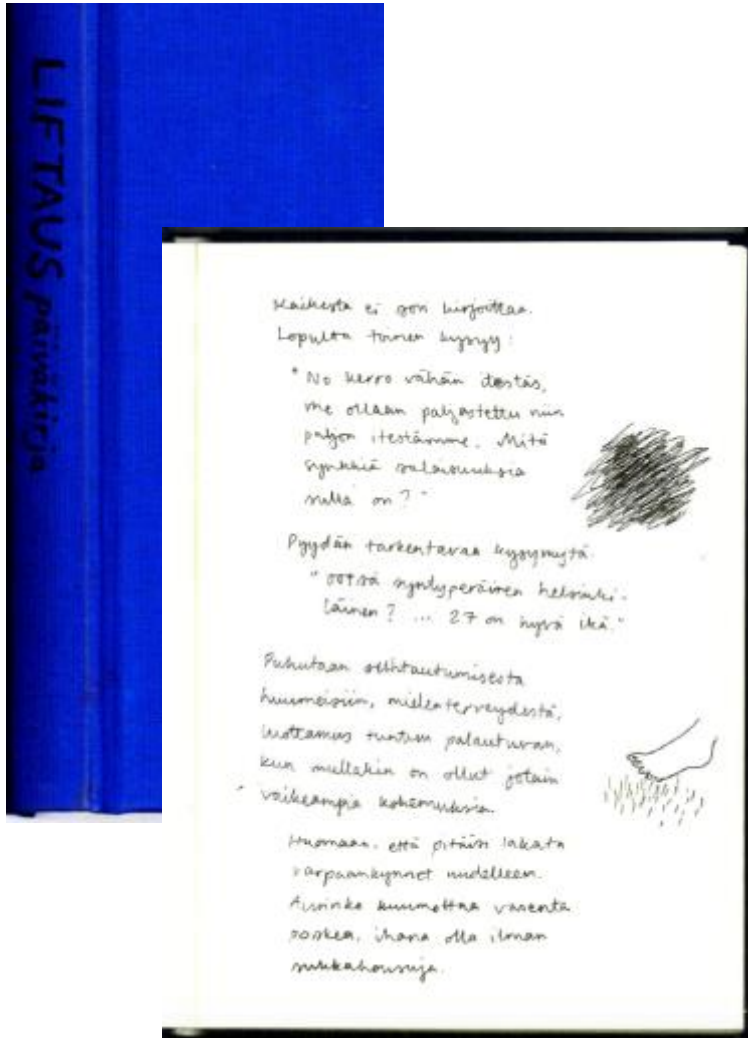 LIFTAUS päiväkirja
Kaikesta ei son kirjoittaa.
Lopulta toinen kysyy:
"No kerro vähän itestäs,
me ollaan paljastettu niin
paljon itestämme. Mitä
synkkiä salaisuuksia
sulla on?"
Pyydän tarkentavaa kysymystä.
"ootsä syntyperäinen helsinki-
läinen? ... 27 on hyvä ikä."
Puhutaan suhtautumisesta
huumeisiin, mielenterveydestä,
luottamus tuntuu palautuvan,
kun mullakin on ollut jotain
vaikeampia kokemuksia.
Huomaan, että pitäisi lakata
varpaankynnet uudelleen.
Aurinko kuumottaa vasenta
poskea, ihana olla ilman
sukkahousuja.